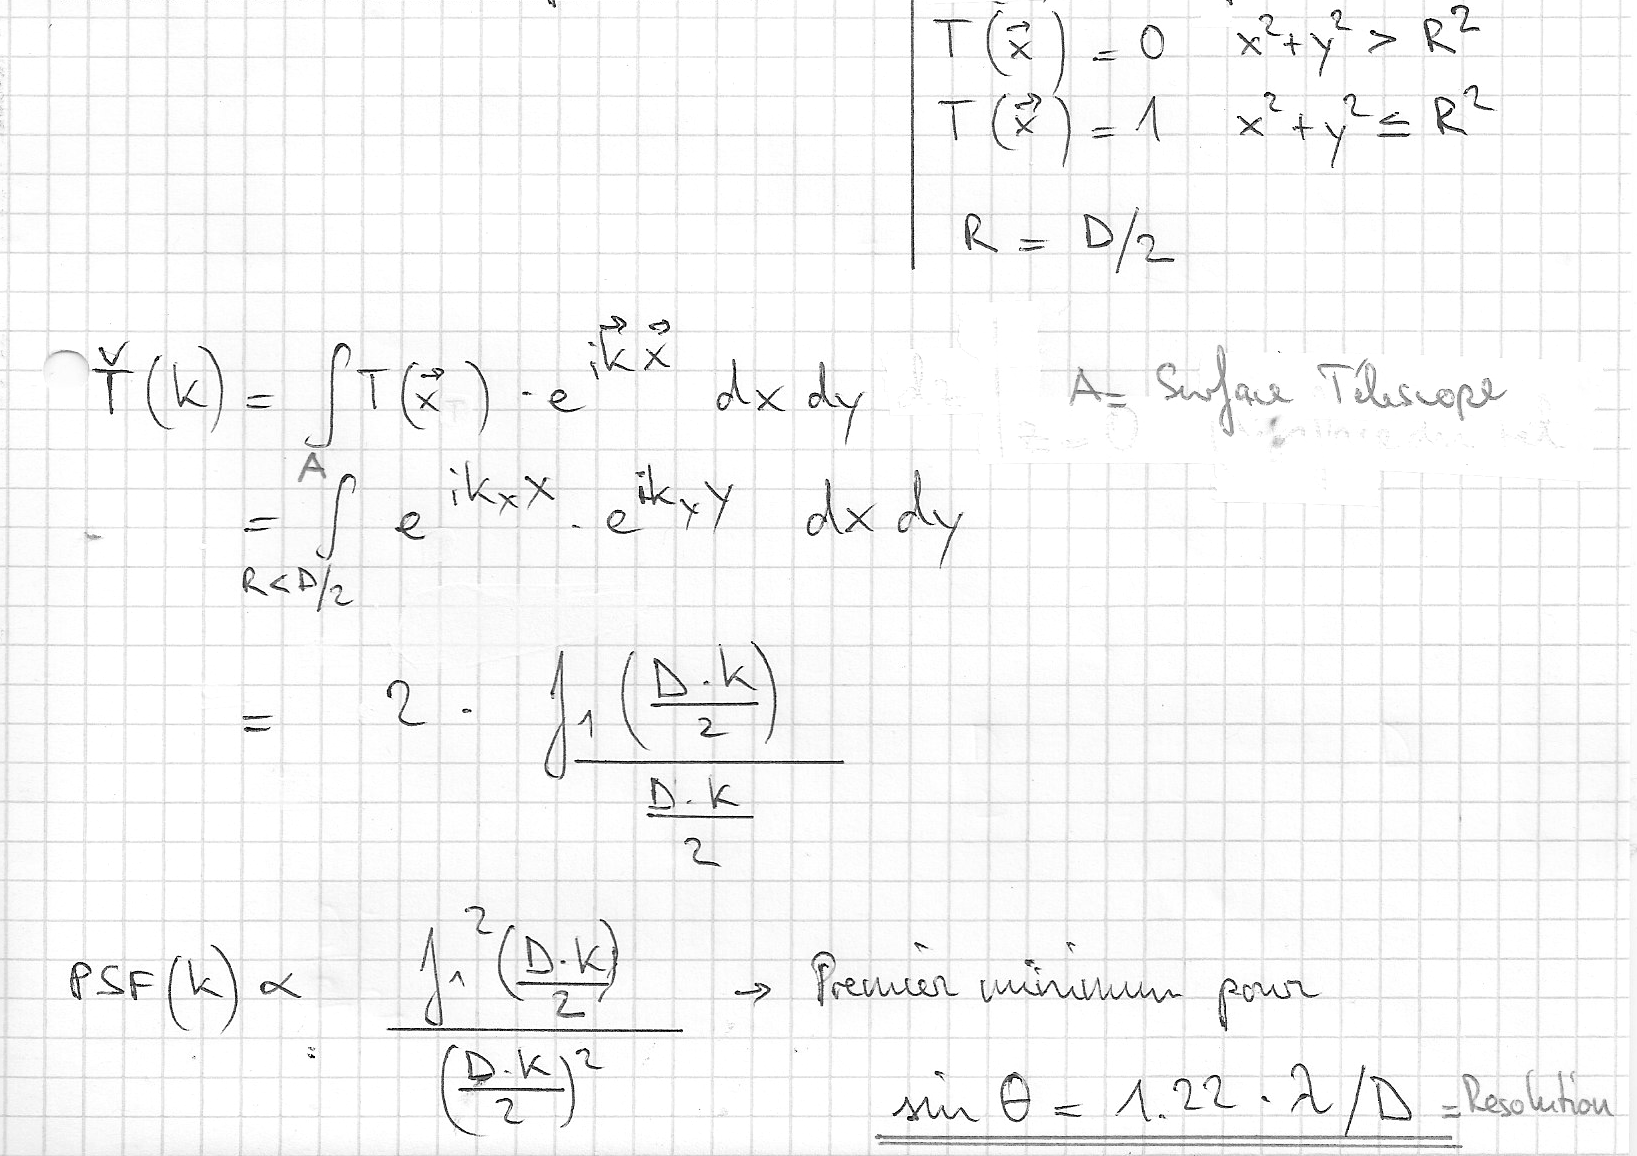 T(x⃗) = 0 x² + y² > R²
T(x⃗) = 1 x² + y² ≤ R²
R = D/2
Ť(k) = ∫_A T(x⃗) · e^{i k⃗ x⃗} dx dy A = Surface Télescope
= ∫_{R<D/2} e^{i k_x x} · e^{i k_y y} dx dy
= 2 · J₁(D·k/2) / (D·k/2)
PSF(k) ∝ J₁²(D·k/2) / (D·k/2)² → Premier minimum pour
sin θ = 1.22 · λ/D = Resolution